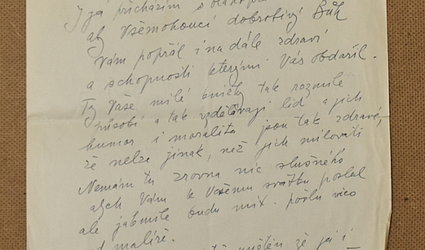 I já přicházím s
aby Všemohoucí dobrotivý Bůh
Vám popřál i na dále zdraví
a schopností kterými Vás obdařil.
Ty Vaše milé knížky tak rozmile
působí a tak vzdělávají lid a jich
humor i moralita jsou tak zdravé,
že nelze jinak, než jich milovati
Nemám tu zrovna nic slušného
abych Vám k Vašemu svátku poslal
ale jakmile budu mít pošlu něco
od malíře.
že já i